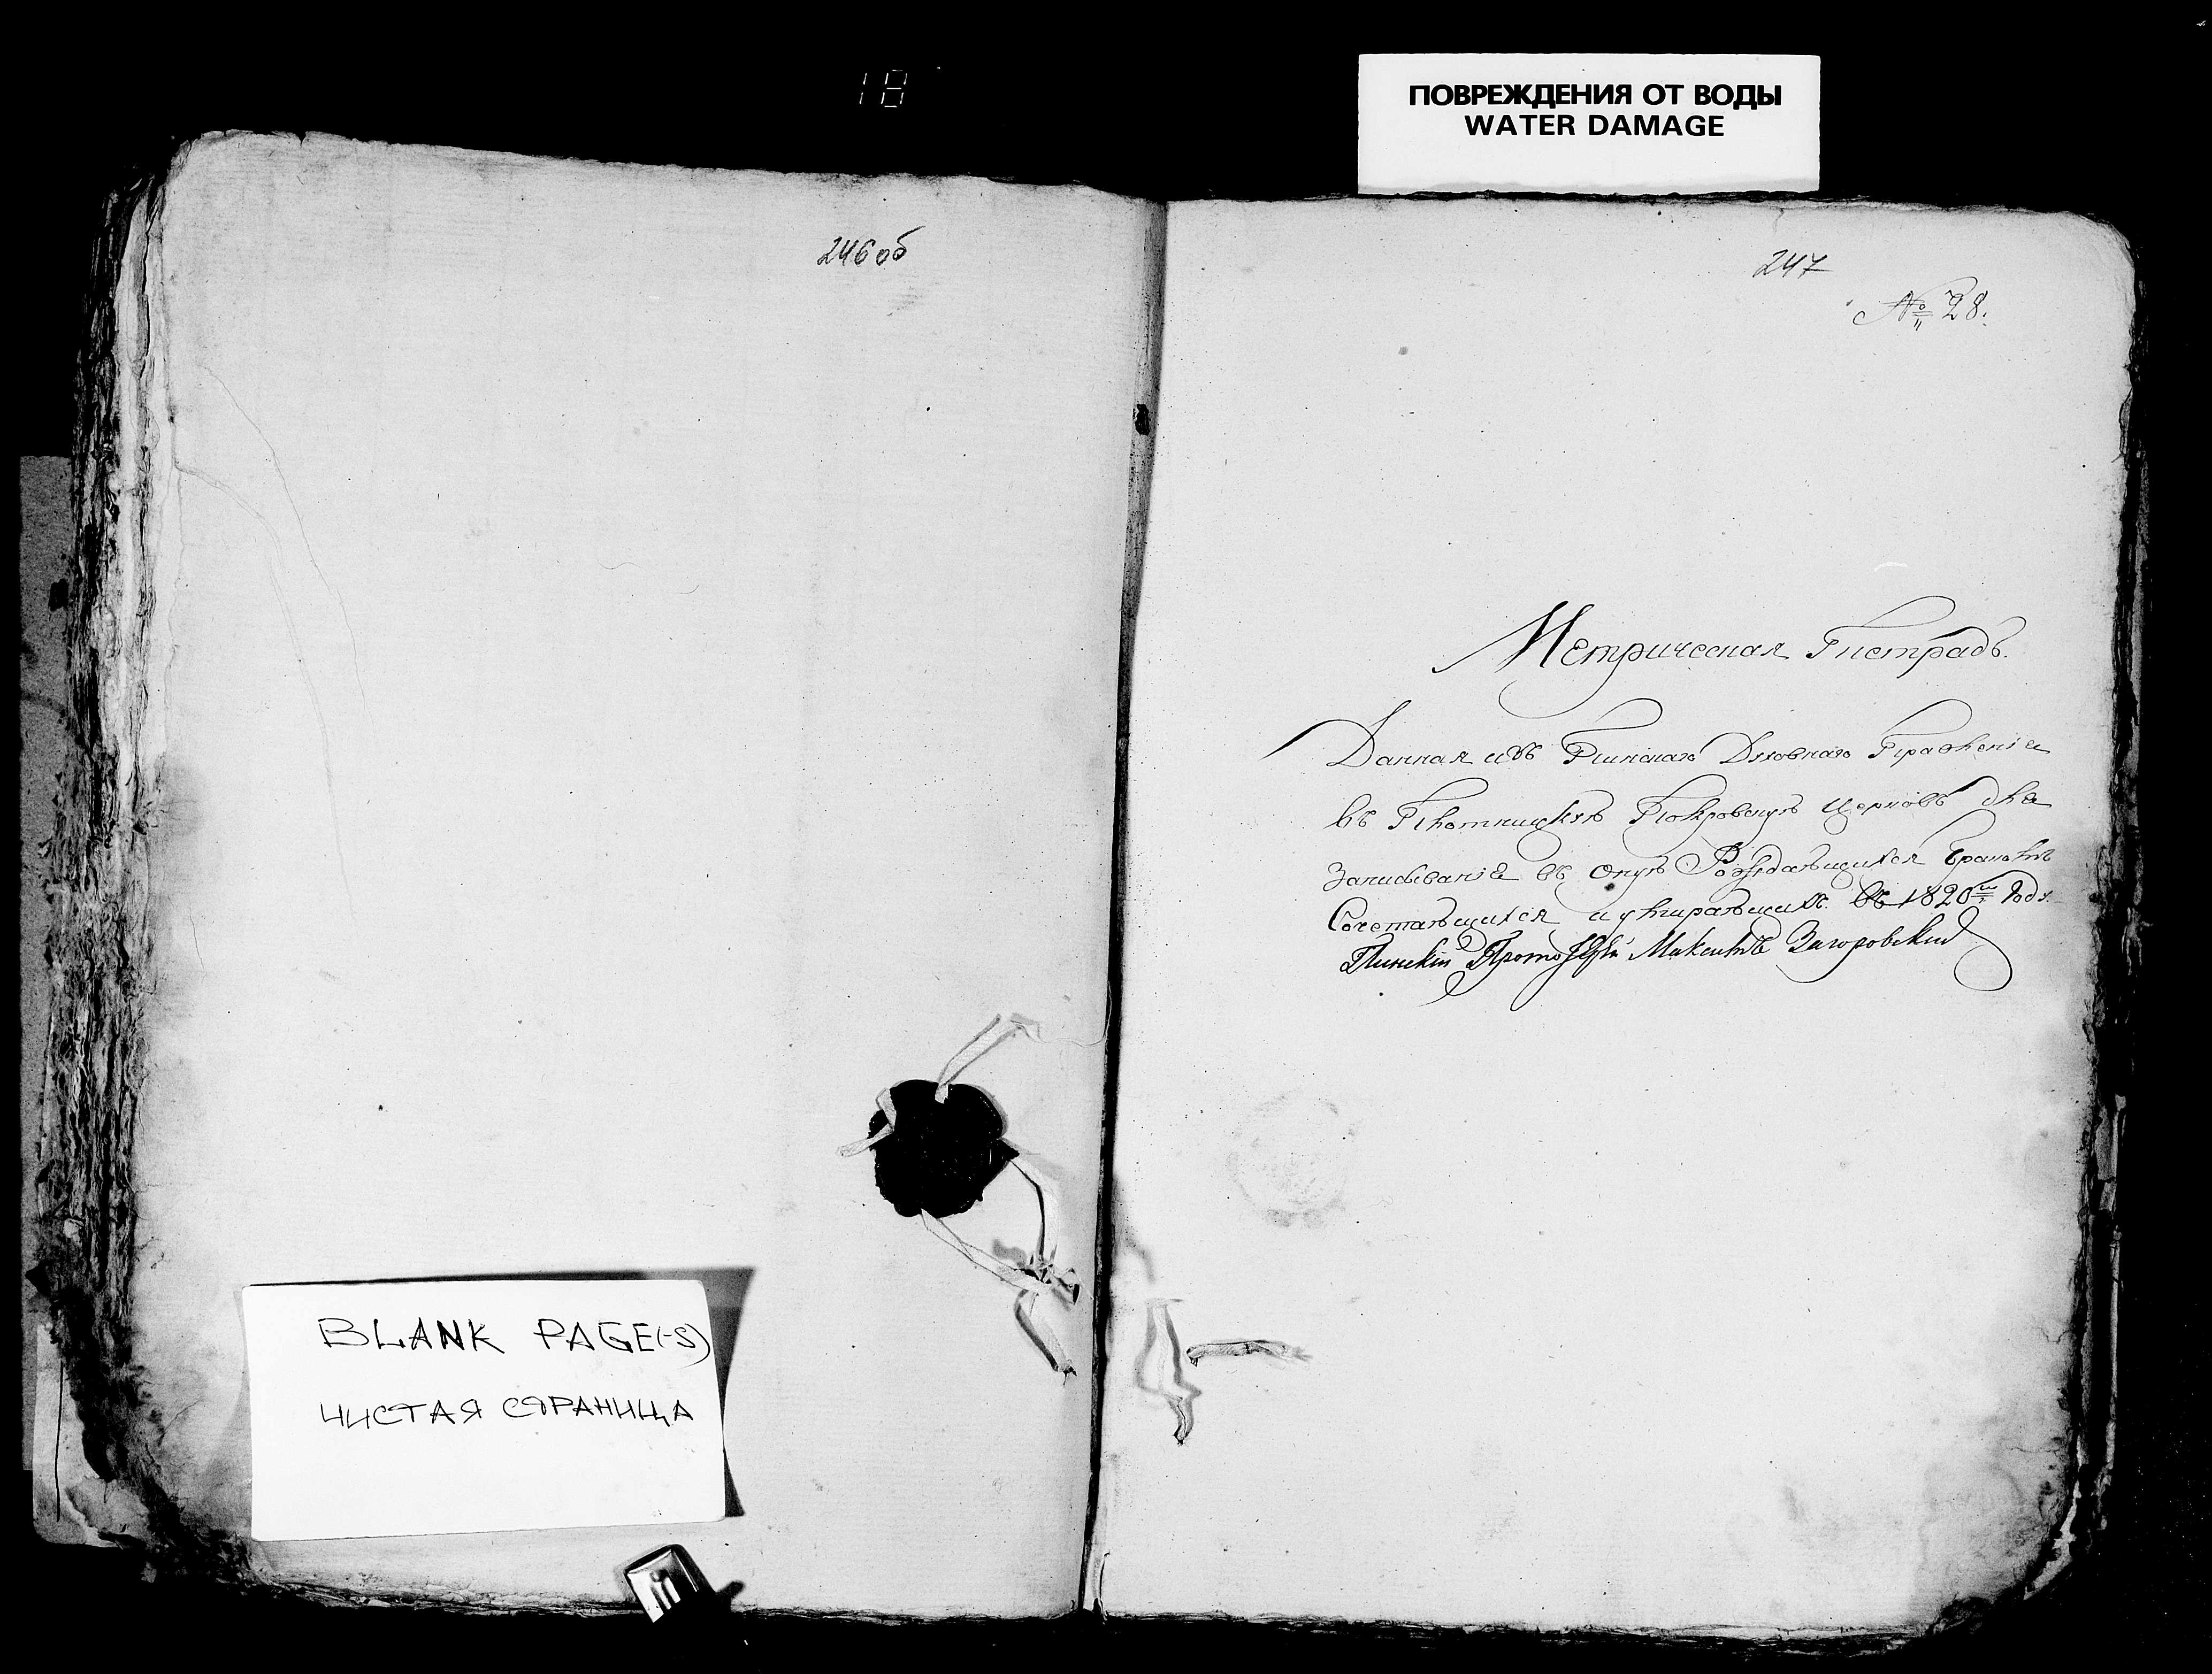 18
ПОВРЕЖДЕНИЯ ОТ ВОДЫ
WATER DAMAGE
246 об
247
№ 28.
Метрическая Тетрадь.
Данная изъ Пинскаго Духовнаго Правленія
въ Плотницкую Покровскую Церковь для
Записыванія въ оную Рождающихся Бракомъ
Сочетающихся и умирающихъ въ 1820м Году.
Пинскій Протоіерей Максимъ Загоровскій
BLANK PAGE(-S)
ЧИСТАЯ СТРАНИЦА